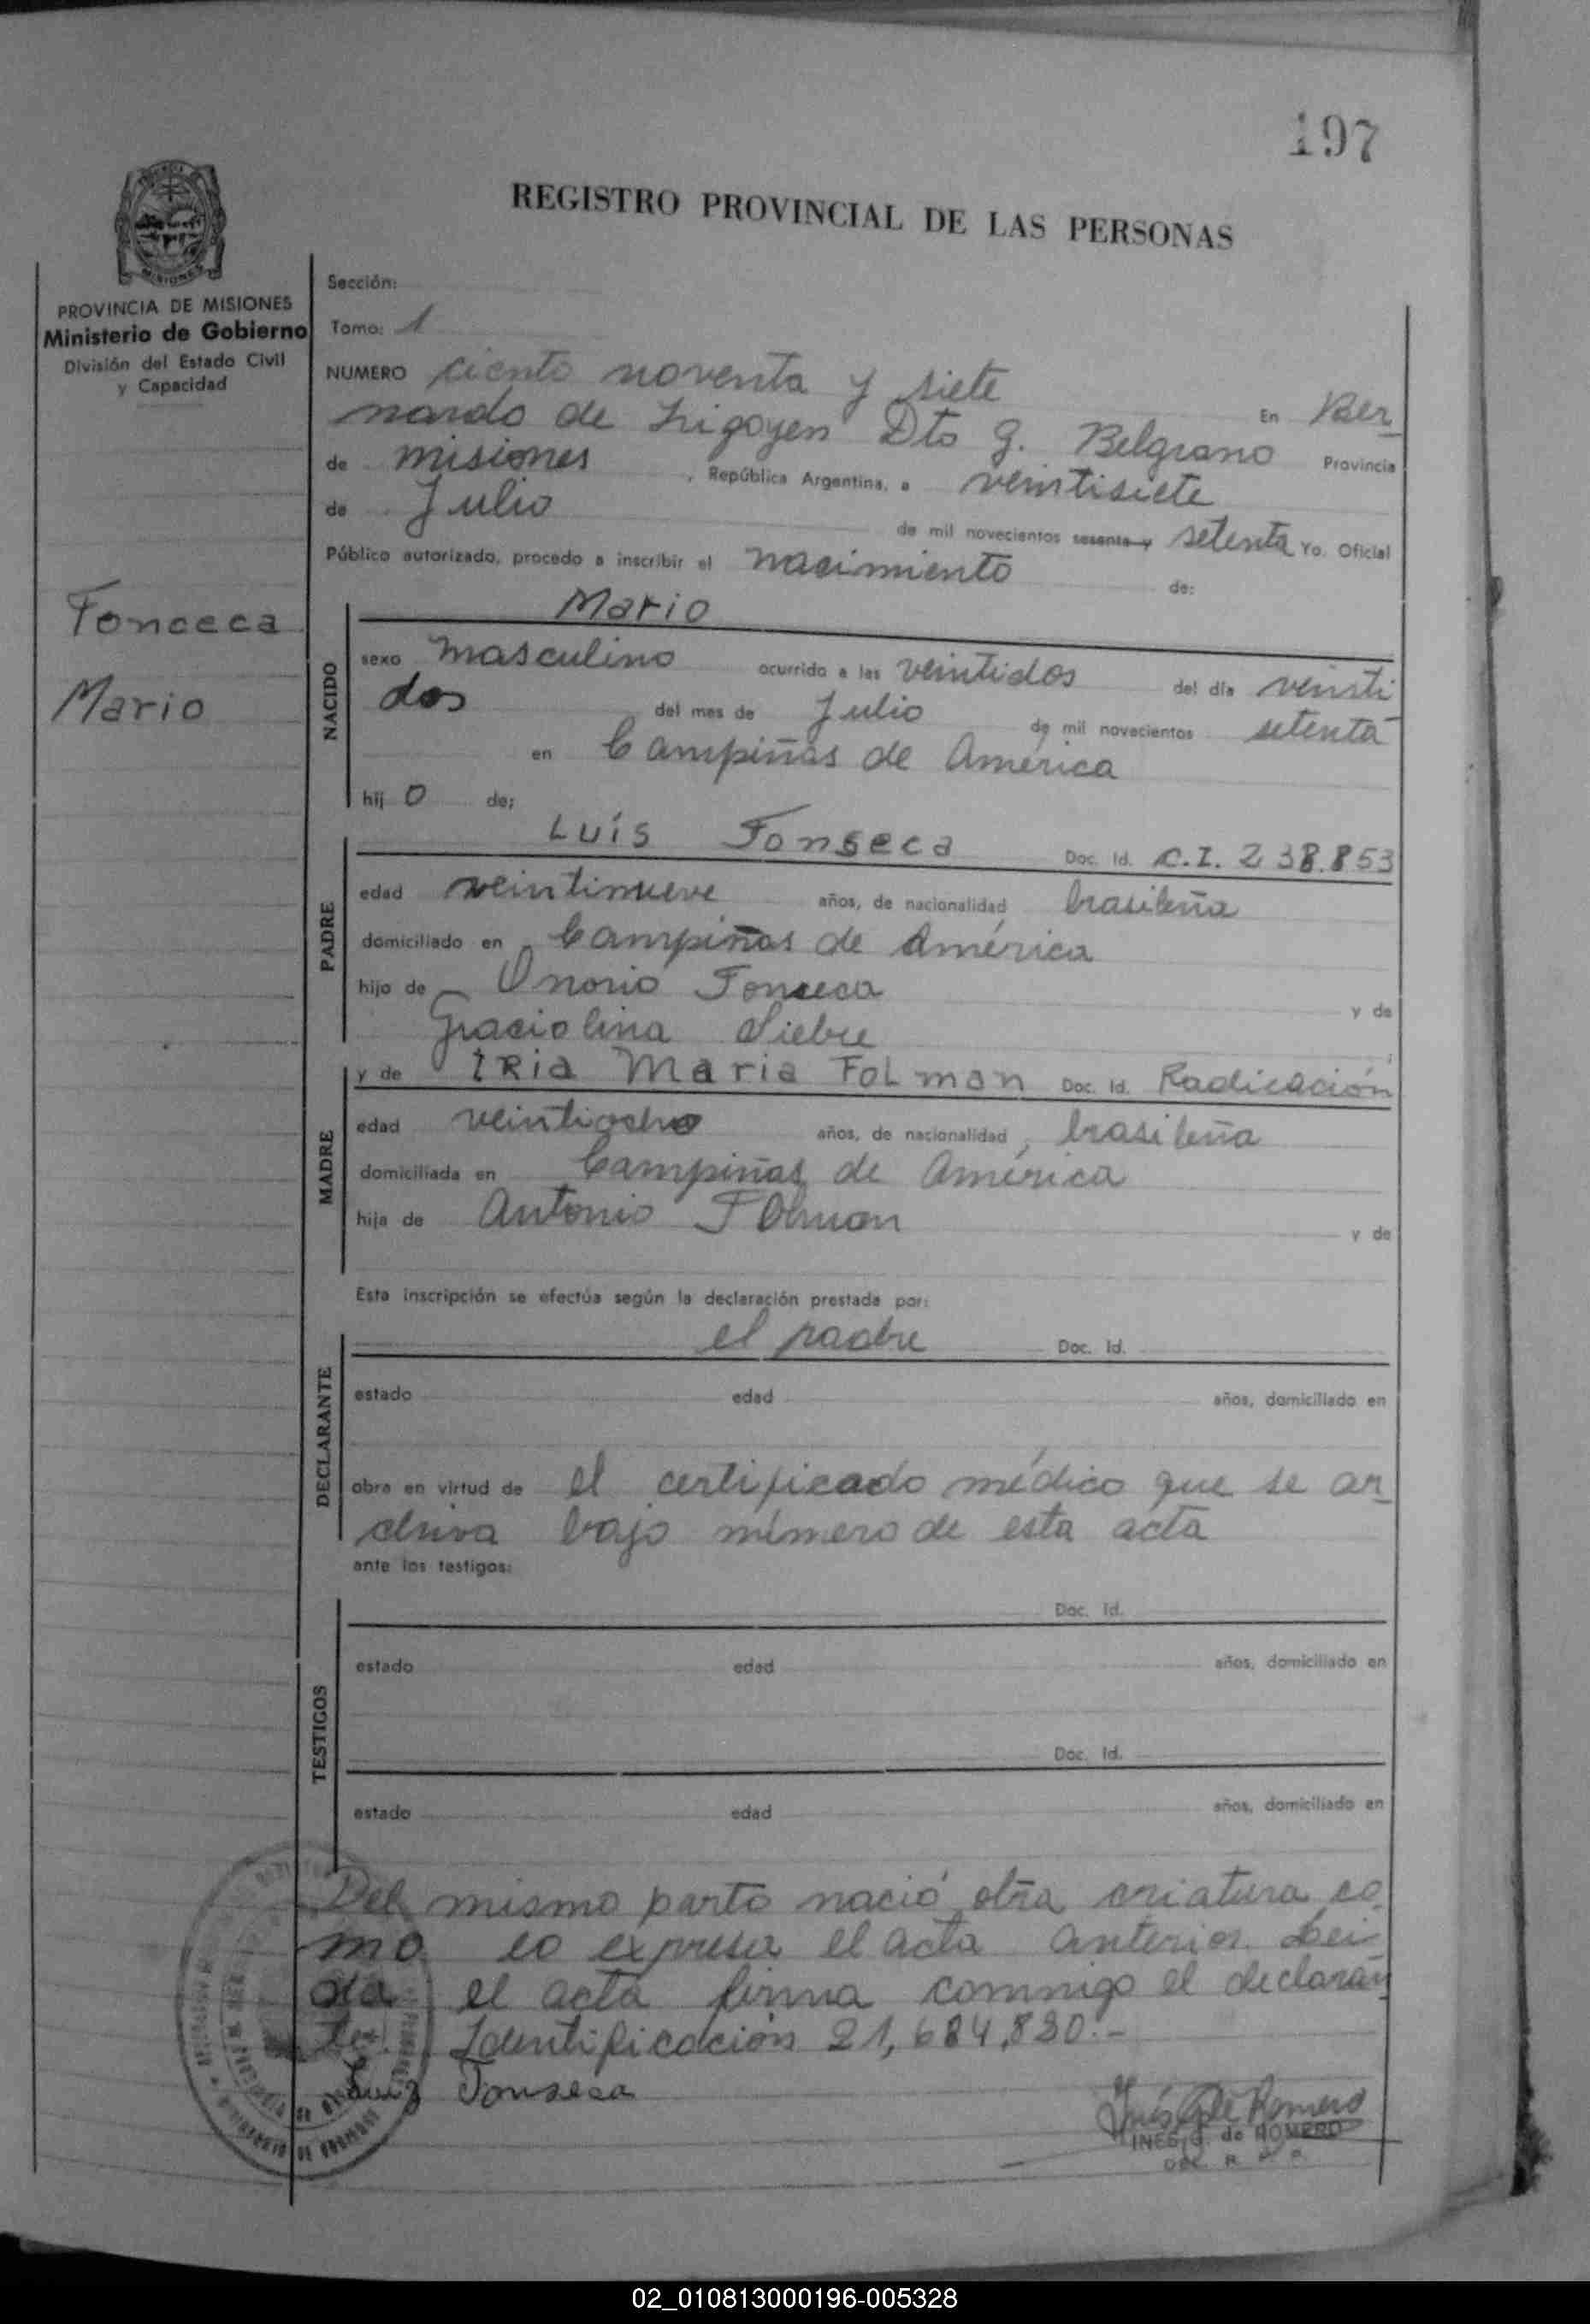 197
REGISTRO PROVINCIAL DE LAS PERSONAS
MISIONES
PROVINCIA DE MISIONES
Ministerio de Gobierno
División del Estado Civil
y Capacidad
Fonceca
Mario
Sección:
Tomo: 1
NUMERO ciento noventa y siete
En Ber
nardo de Irigoyen Dto G. Belgrano Provincia
de misiones , República Argentina, a veintisiete
de Julio de mil novecientos sesenta y setenta Yo, Oficial
Público autorizado, procedo a inscribir el nacimiento de:
Mario
NACIDO
sexo masculino ocurrido a las veintidos del día veinti
dos del mes de Julio de mil novecientos setenta
en Campiñas de América
hij o de:
Luís Fonseca Doc. Id. C.I. 238.853
PADRE
edad veintinueve años, de nacionalidad brasileña
domiciliado en Campiñas de América
hijo de Onorio Fonseca y de
Graciolina Siebre
y de IRia Maria FoLman Doc. Id. Radicación
MADRE
edad veintiocho años, de nacionalidad brasileña
domiciliada en Campiñas de América
hija de Antonio Folman y de
Esta inscripción se efectúa según la declaración prestada por:
el padre Doc. Id.
DECLARANTE
estado edad años, domiciliado en
obra en virtud de el certificado médico que se ar
chiva bajo número de esta acta
ante los testigos:
Doc. Id.
TESTIGOS
estado edad años, domiciliado en
Doc. Id.
estado edad años, domiciliado en
Del mismo parto nació otra criatura co
mo lo expresa el acta anterior. Lei
da el acta firma conmigo el declaran
te. Identificación 21,684,820.-
Luiz Fonseca
Inés G. de Romero
INES G. de ROMERO
02_010813000196-005328